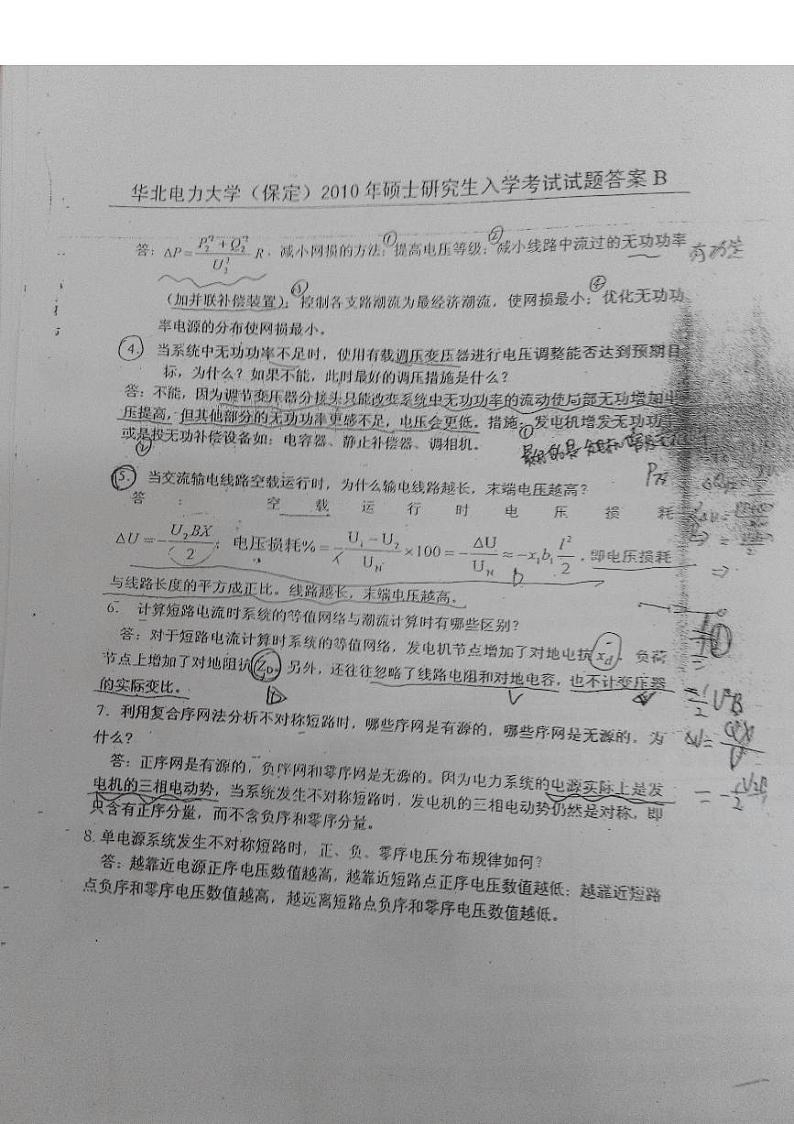 华北电力大学（保定）2010年硕士研究生入学考试试题答案B
答：ΔP=\frac{P_2^2+Q_2^2}{U_2^2}R，减小网损的方法：①提高电压等级；②减小线路中流过的无功功率 有功率
（加并联补偿装置）；③控制各支路潮流为最经济潮流，使网损最小；④优化无功功
率电源的分布使网损最小。
4. 当系统中无功功率不足时，使用有载调压变压器进行电压调整能否达到预期目
标，为什么？如果不能，此时最好的调压措施是什么？
答：不能，因为调节变压器分接头只能改变系统中无功功率的流动使局部无功增加电
压提高，但其他部分的无功功率更感不足，电压会更低。措施：①发电机增发无功功率
或是②投无功补偿设备如：电容器、静止补偿器、调相机。
5. 当交流输电线路空载运行时，为什么输电线路越长，末端电压越高？
答：空载运行时电压损耗
ΔU=-\frac{U_2BX}{2}；电压损耗%=\frac{U_1-U_2}{U_N}×100=-\frac{ΔU}{U_N}≈-x_1b_1\frac{l^2}{2}，即电压损耗
与线路长度的平方成正比。线路越长，末端电压越高。
6. 计算短路电流时系统的等值网络与潮流计算时有哪些区别？
答：对于短路电流计算时系统的等值网络，发电机节点增加了对地电抗x_d，负荷
节点上增加了对地阻抗Z_D。另外，还往往忽略了线路电阻和对地电容，也不计变压器
的实际变比。
7. 利用复合序网法分析不对称短路时，哪些序网是有源的，哪些序网是无源的。为
什么？
答：正序网是有源的，负序网和零序网是无源的。因为电力系统的电源实际上是发
电机的三相电动势，当系统发生不对称短路时，发电机的三相电动势仍然是对称，即
只含有正序分量，而不含负序和零序分量。
8. 单电源系统发生不对称短路时，正、负、零序电压分布规律如何？
答：越靠近电源正序电压数值越高，越靠近短路点正序电压数值越低；越靠近短路
点负序和零序电压数值越高，越远离短路点负序和零序电压数值越低。